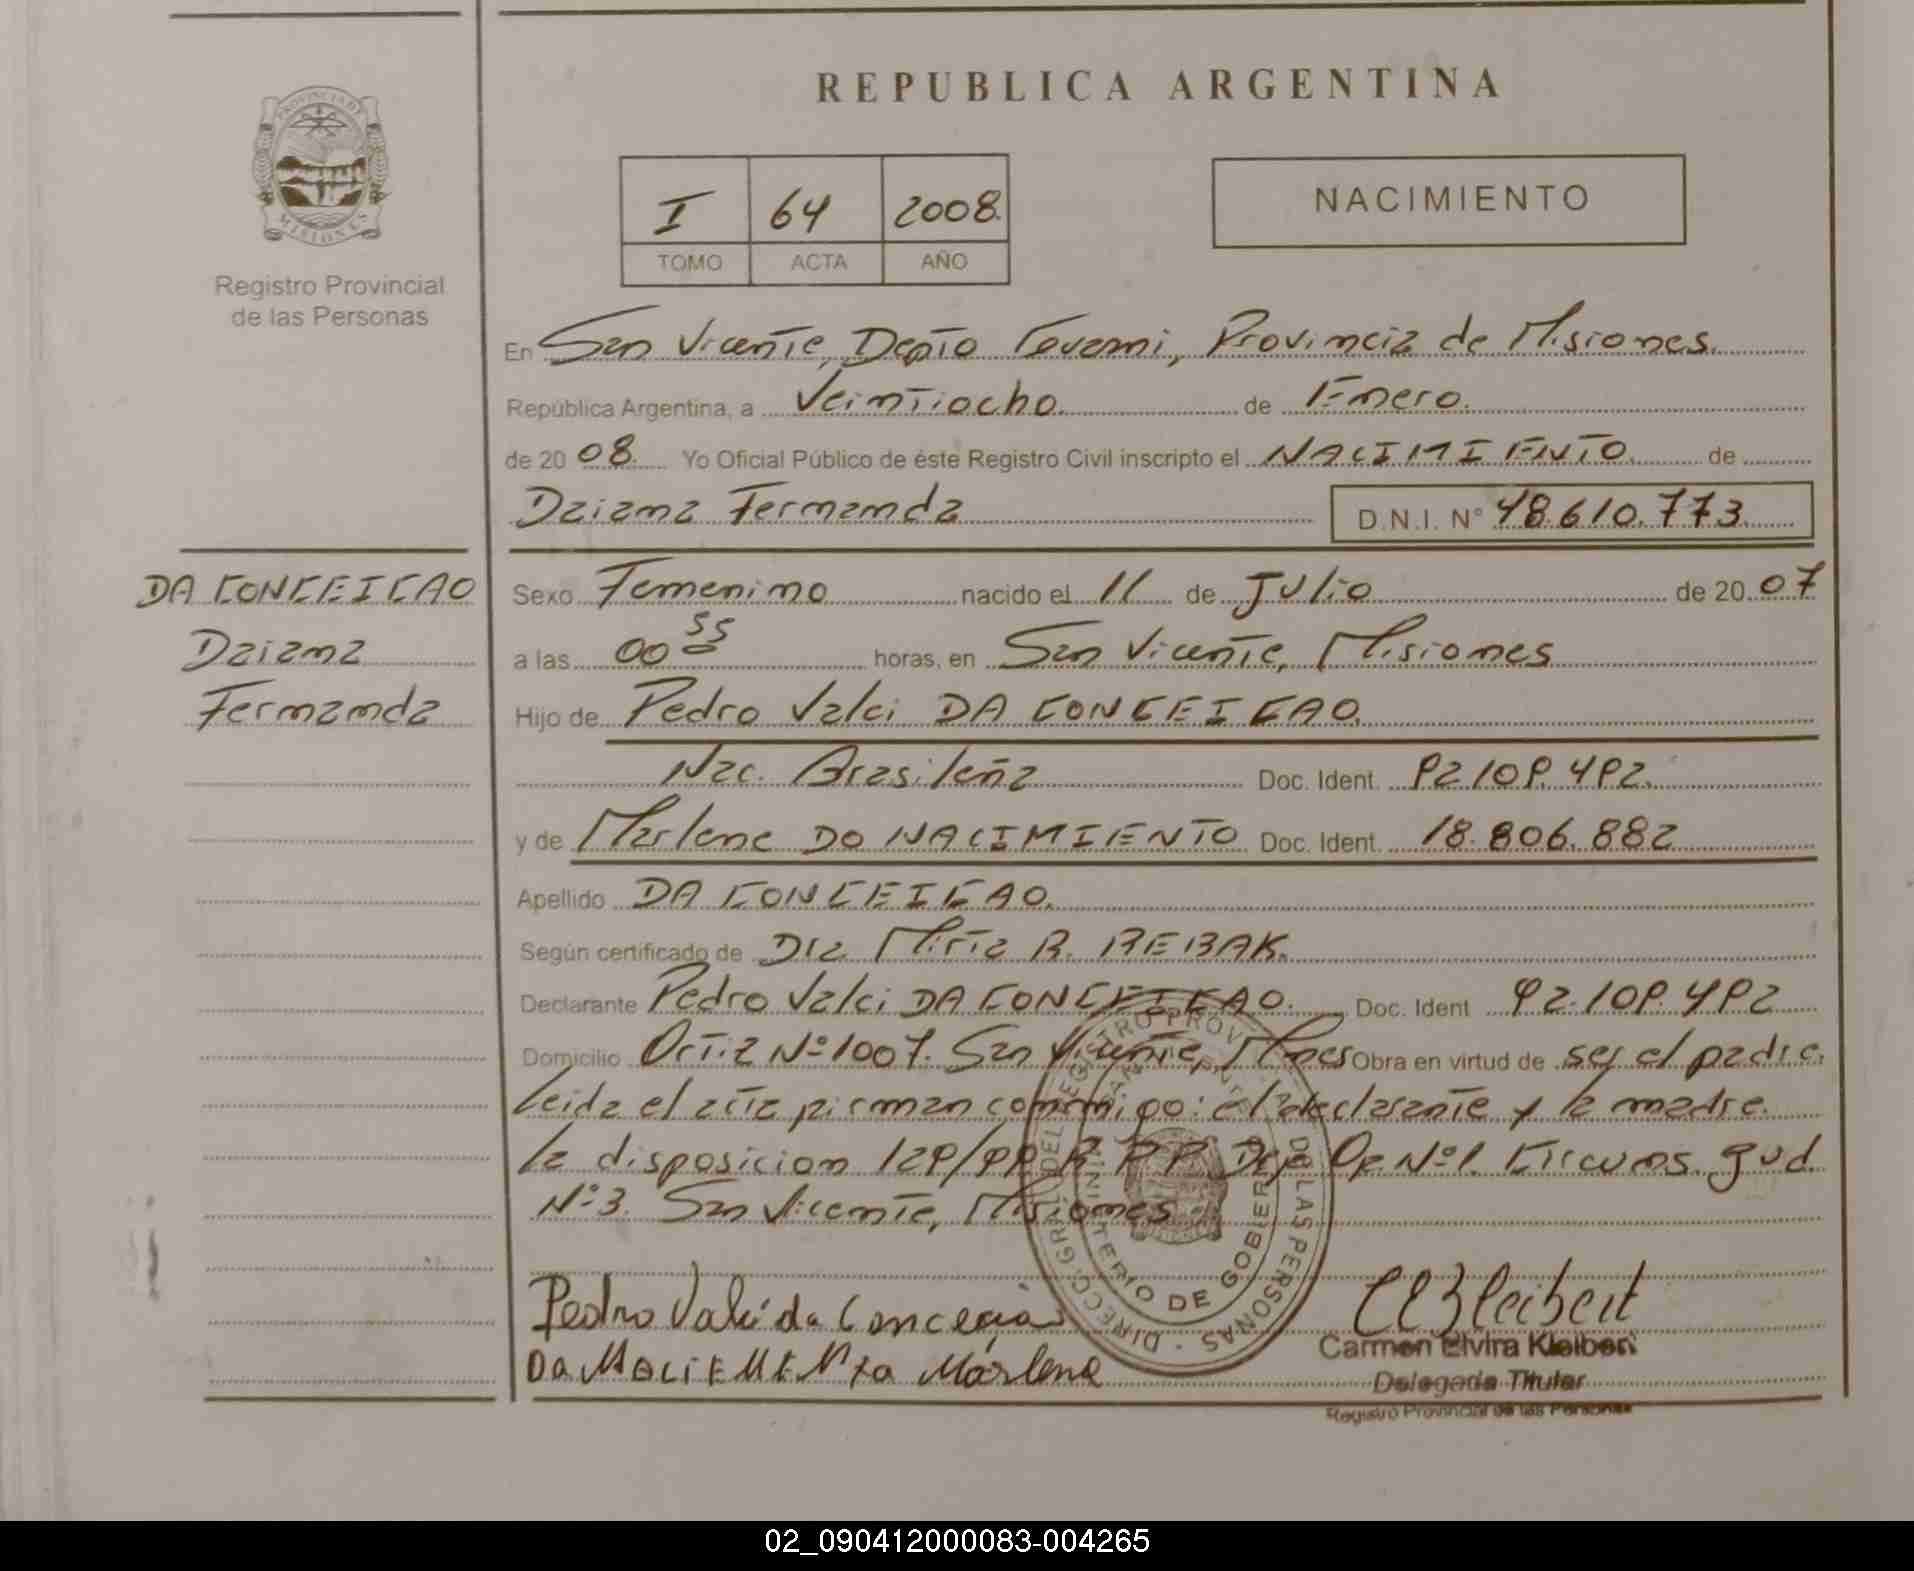 PROVINCIA DE
MISIONES
Registro Provincial
de las Personas
REPUBLICA ARGENTINA
I 64 2008.
TOMO ACTA AÑO
NACIMIENTO
En San Vicente, Depto Guarani, Provincia de Misiones.
República Argentina, a Veintiocho. de Enero.
de 20 08. Yo Oficial Público de éste Registro Civil inscripto el NACIMIENTO. de
Daiana Fernanda D.N.I. Nº 48.610.773.
DA CONCEICAO
Daiana
Fernanda
Sexo Femenino nacido el 11 de Julio de 20 07
a las 00 55 horas, en San Vicente, Misiones
Hijo de Pedro Valci DA CONCEICAO.
Nac. Brasileña Doc. Ident. 92.109.492.
y de Marlene DO NACIMIENTO Doc. Ident. 18.806.882
Apellido DA CONCEICAO.
Según certificado de Dra Mirta R. REBAK.
Declarante Pedro Valci DA CONCEICAO. Doc. Ident 92.109.492
Domicilio Ortiz Nº 1007. San Vicente, Mnes Obra en virtud de ser el padre.
Leida el acta firman conmigo: el declarante y la madre.
la disposicion 129/99 R.P.P. Dpto Op Nº 1. Circuns. Jud.
Nº 3. San Vicente, Misiones
DIRECC. GRAL. DEL REGISTRO PROV. DE LAS PERSONAS
MINISTERIO DE GOBIERNO
Pedro Valci da
Marlene
Carmen Elvira Kleibert
Delegada Titular
Registro Provincial de las Personas
02_090412000083-004265